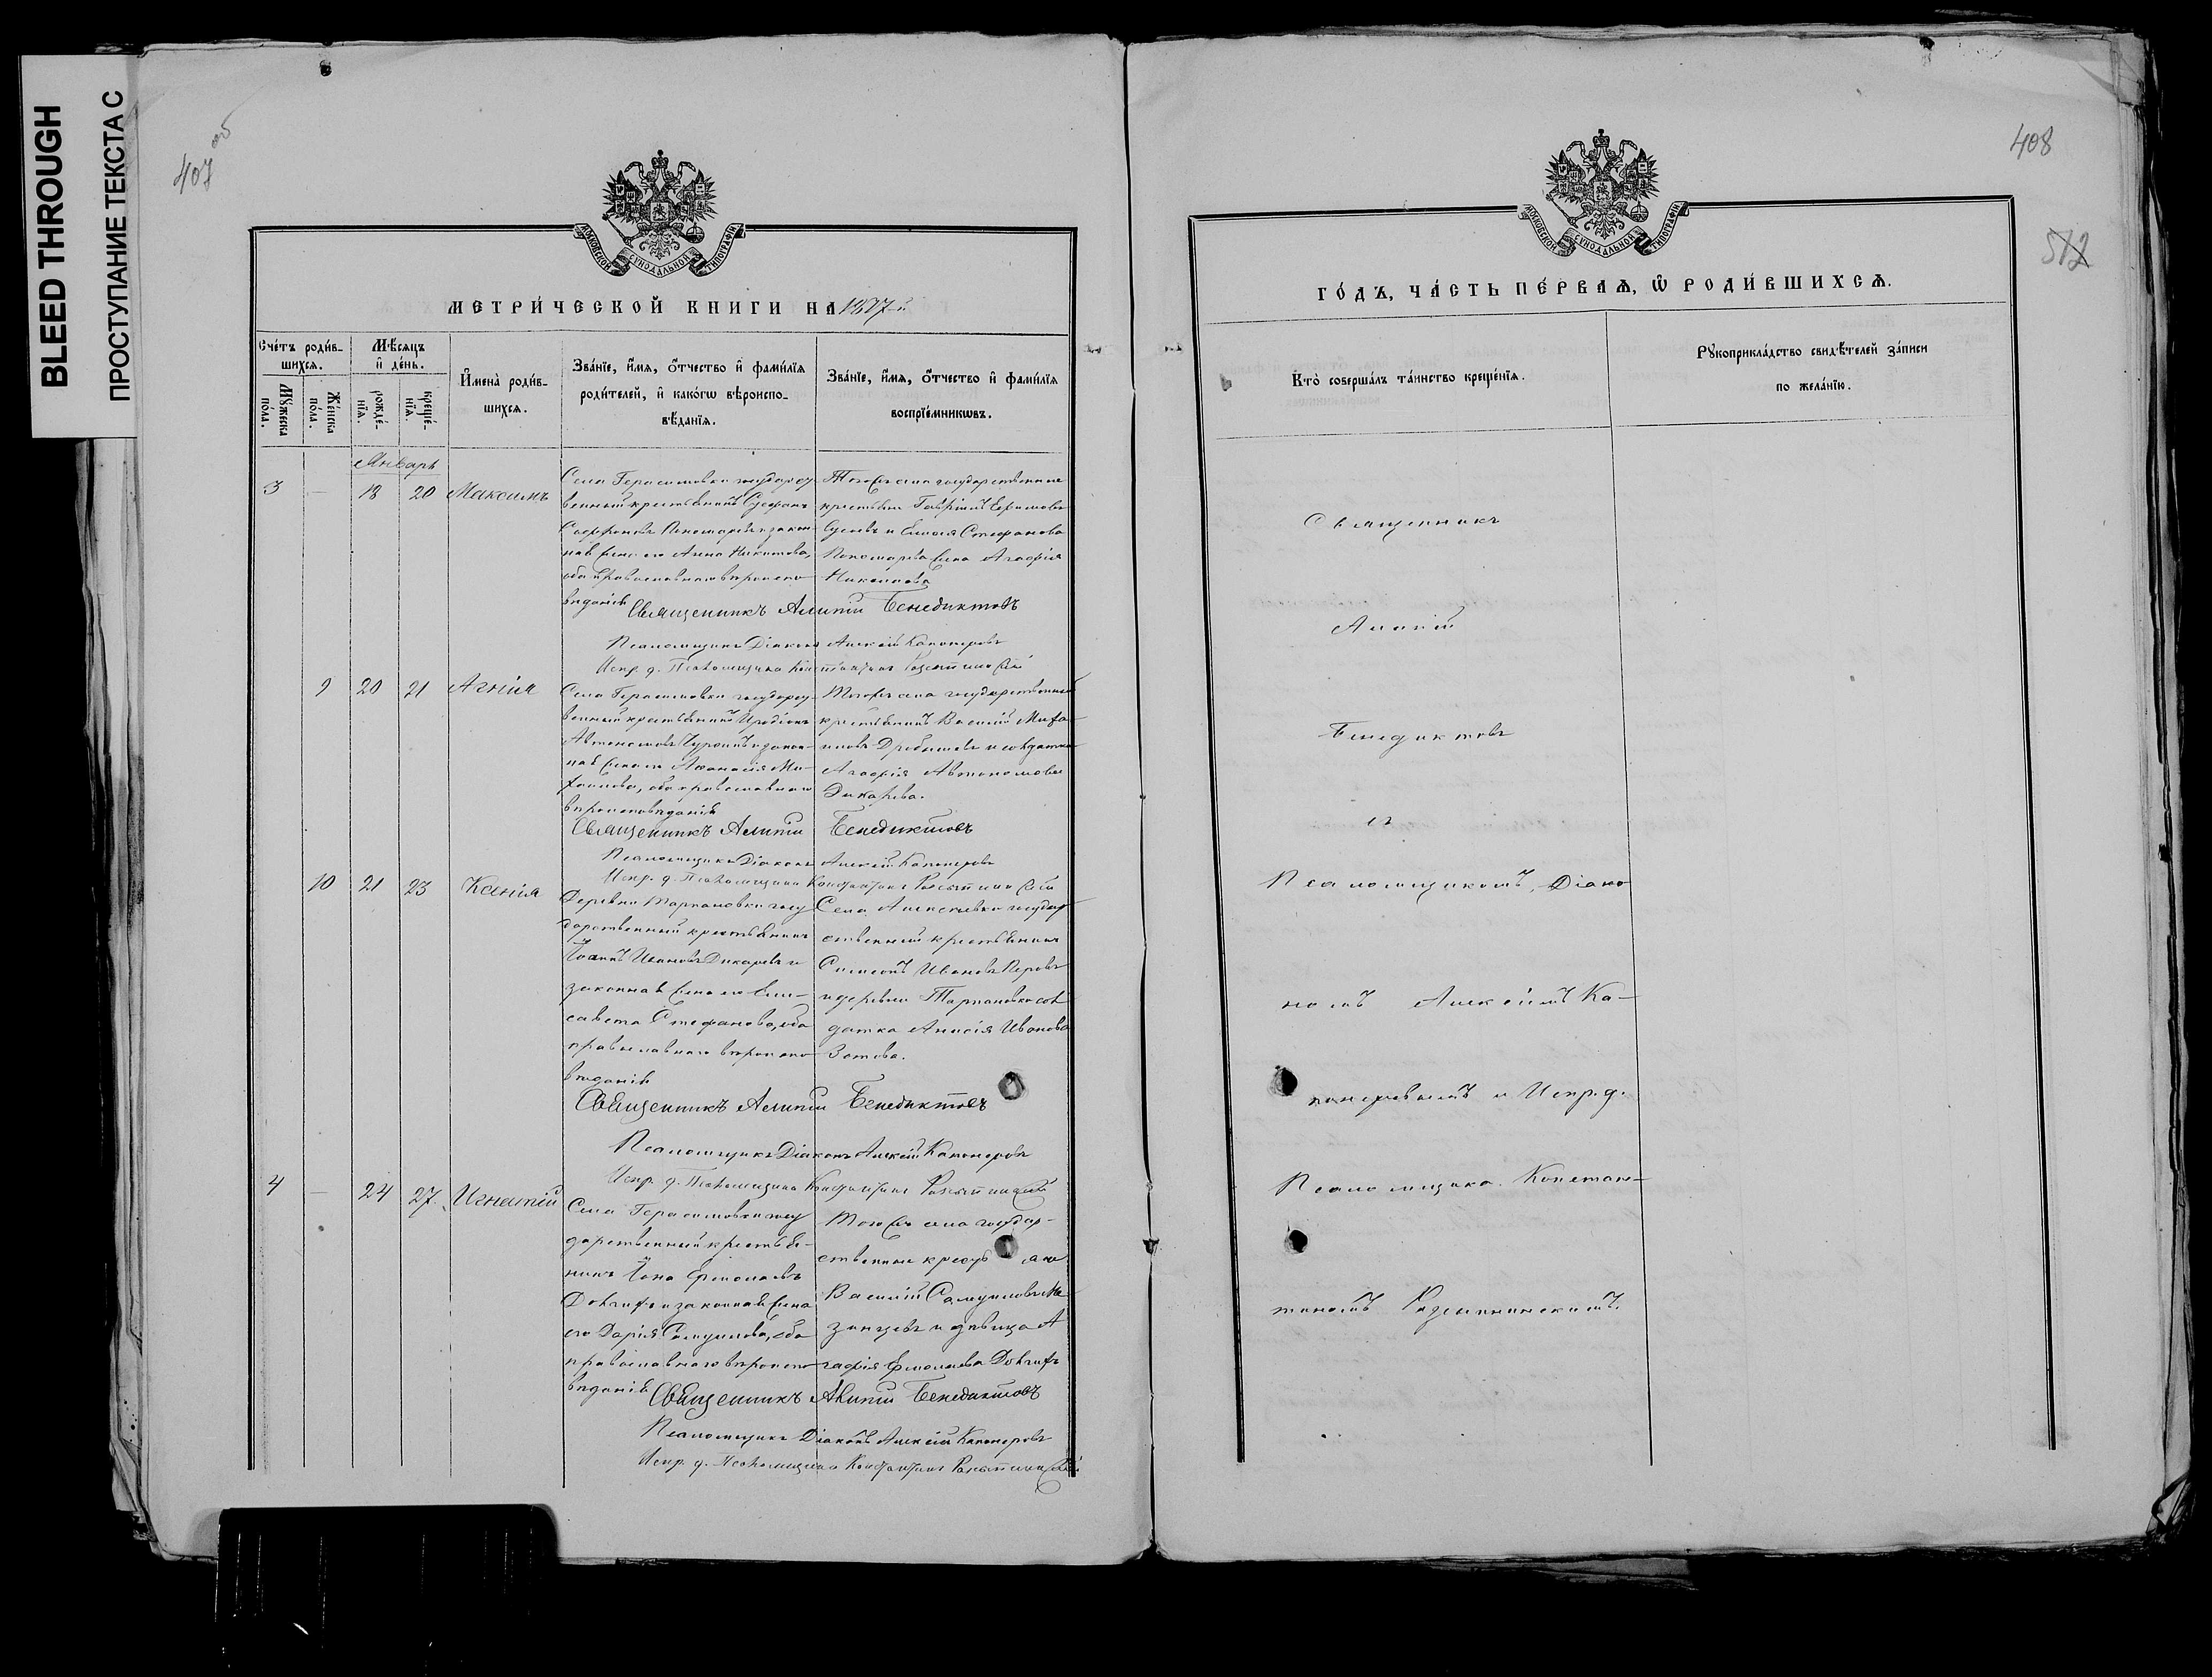 BLEED THROUGH
ПРОСТУПАНИЕ ТЕКСТА С
407 об
МОСКОВСКОЙ СѴНОДАЛЬНОЙ ТИПОГРАФІИ
МЕТРИ́ЧЕСКОЙ КНИГИ НА 1887-й
Сче́тъ роди́в-
шихсѧ.
Мꙋ́жеска по́ла.
Же́нска по́ла.
Мѣ́сѧцъ
и҆ де́нь.
рожде́-
нїѧ.
креще́-
нїѧ.
И҆мена̀ роди́в-
шихсѧ.
Зва́нїе, и҆́мѧ, ѻ҆́тчество и҆ фами́лїѧ
роди́телей, и҆ како́гѡ вѣроиспо-
вѣ́данїѧ.
Зва́нїе, и҆́мѧ, ѻ҆́тчество и҆ фами́лїѧ
воспрїе́мникѡвъ.
Январь
3 — 18 20 Максимъ
Села Герасимовки государст
венный крестьянинъ Стефанъ
Софроновъ Пономаревъ и закон
ная жена его Анна Никитова,
оба православнаго вѣроиспо
вѣданія
Тогоже села государственные
крестьяне Гавріилъ Ефимовъ
и Стефанова
Пономарева жена Агафія
Священникъ Алипій Бенедиктовъ
Псаломщикъ Діаконъ Алексій Капонеровъ
Испр. д. Псаломщика Константинъ
9 20 21 Агнія
Села Герасимовки государст
венный крестьянинъ Иродіонъ
Автономовъ и закон-
ная жена его Афанасія Ми-
хаилова, оба православнаго
вѣроисповѣданія
Тогоже села государственный
крестьянинъ Василій Миха-
иловъ и солдатка
Агафія Автономова
Дикарева.
Священникъ Алипій Бенедиктовъ
Псаломщикъ Діаконъ Алексій Капонеровъ
Испр. д. Псаломщика Константинъ
10 21 23 Ксенія
Деревни Тарпановки госу
дарственный крестьянинъ
Іоаннъ Ивановъ Дикаревъ и
законная жена его Ели-
савета Стефанова, оба
православнаго вѣроиспо
вѣданія
Села Алексѣевки государ
ственный крестьянинъ
Симеонъ Ивановъ Перовъ
и деревни Тарпановки сол
датка Анисія Иванова
Зотова.
Священникъ Алипій Бенедиктовъ
Псаломщикъ Діаконъ Алексій Капонеровъ
Испр. д. Псаломщика Константинъ
4 — 24 27 Игнатій
Села Герасимовки госу
дарственный крестья-
нинъ Іона Ермолаевъ
и законная жена
его Дарія Самуилова, оба
православнаго вѣроиспо
вѣданія
Тогоже села государ-
ственные
Василій Самуиловъ Ма
занцевъ и дѣвица А
гафія Ермолаева
Священникъ Алипій Бенедиктовъ
Псаломщикъ Діаконъ Алексій Капонеровъ
Испр. д. Псаломщика Константинъ
408
512
МОСКОВСКОЙ СѴНОДАЛЬНОЙ ТИПОГРАФІИ
ГО́ДЪ, ЧА́СТЬ ПЕ́РВАѦ, Ѽ РОДИ́ВШИХСѦ.
Кто̀ соверша́лъ та́инство креще́нїѧ.
Рꙋкоприкла́дство свидѣ́телей за́писи
по жела́нїю.
Священникъ
Алипій
Бенедиктовъ
съ
Псаломщикомъ, Діако
номъ Алексіемъ Ка-
понеровымъ и Испр. д.
Псаломщика Констан-
тиномъ Разсыпнинскимъ.